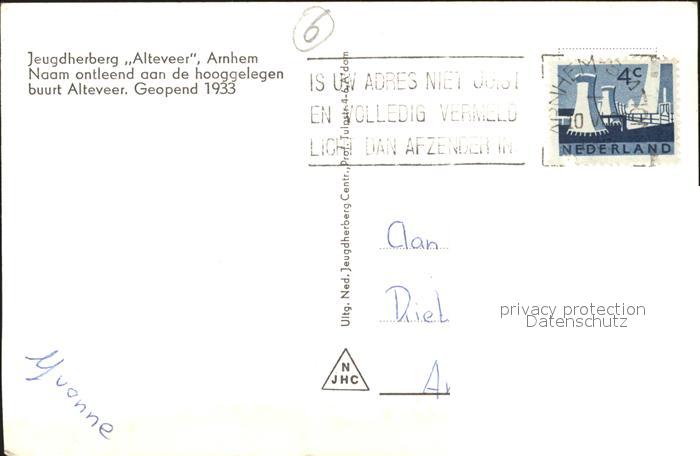 6
Jeugdherberg „Alteveer“, Arnhem
Naam ontleend aan de hooggelegen
buurt Alteveer. Geopend 1933
IS UW ADRES NIET JUIST
EN VOLLEDIG VERMELD
LICHT DAN AFZENDER IN
ARNHEM
4c
NEDERLAND
Uitg. Ned. Jeugdherberg Centr., Prof. Tulpstr. 4-6, A'dom
Aan
Diet
Ar
privacy protection
Datenschutz
N
JHC
Yvonne